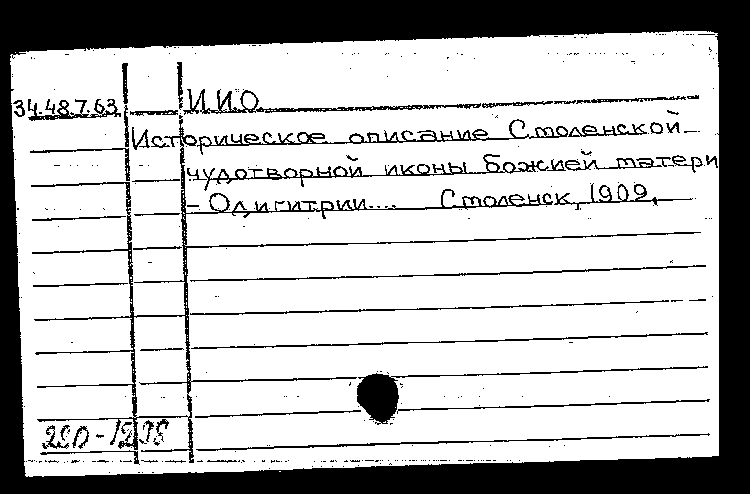 34.48.7.63 И.И.О.
Историческое описание Смоленской
чудотворной иконы Божией матери
- Одигитрии.... Смоленск, 1909.